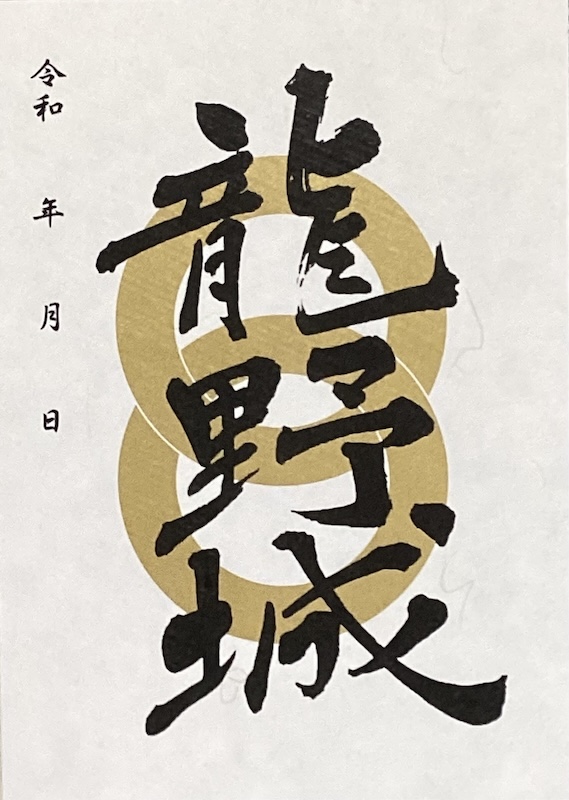 龍野城
令和　年　月　日